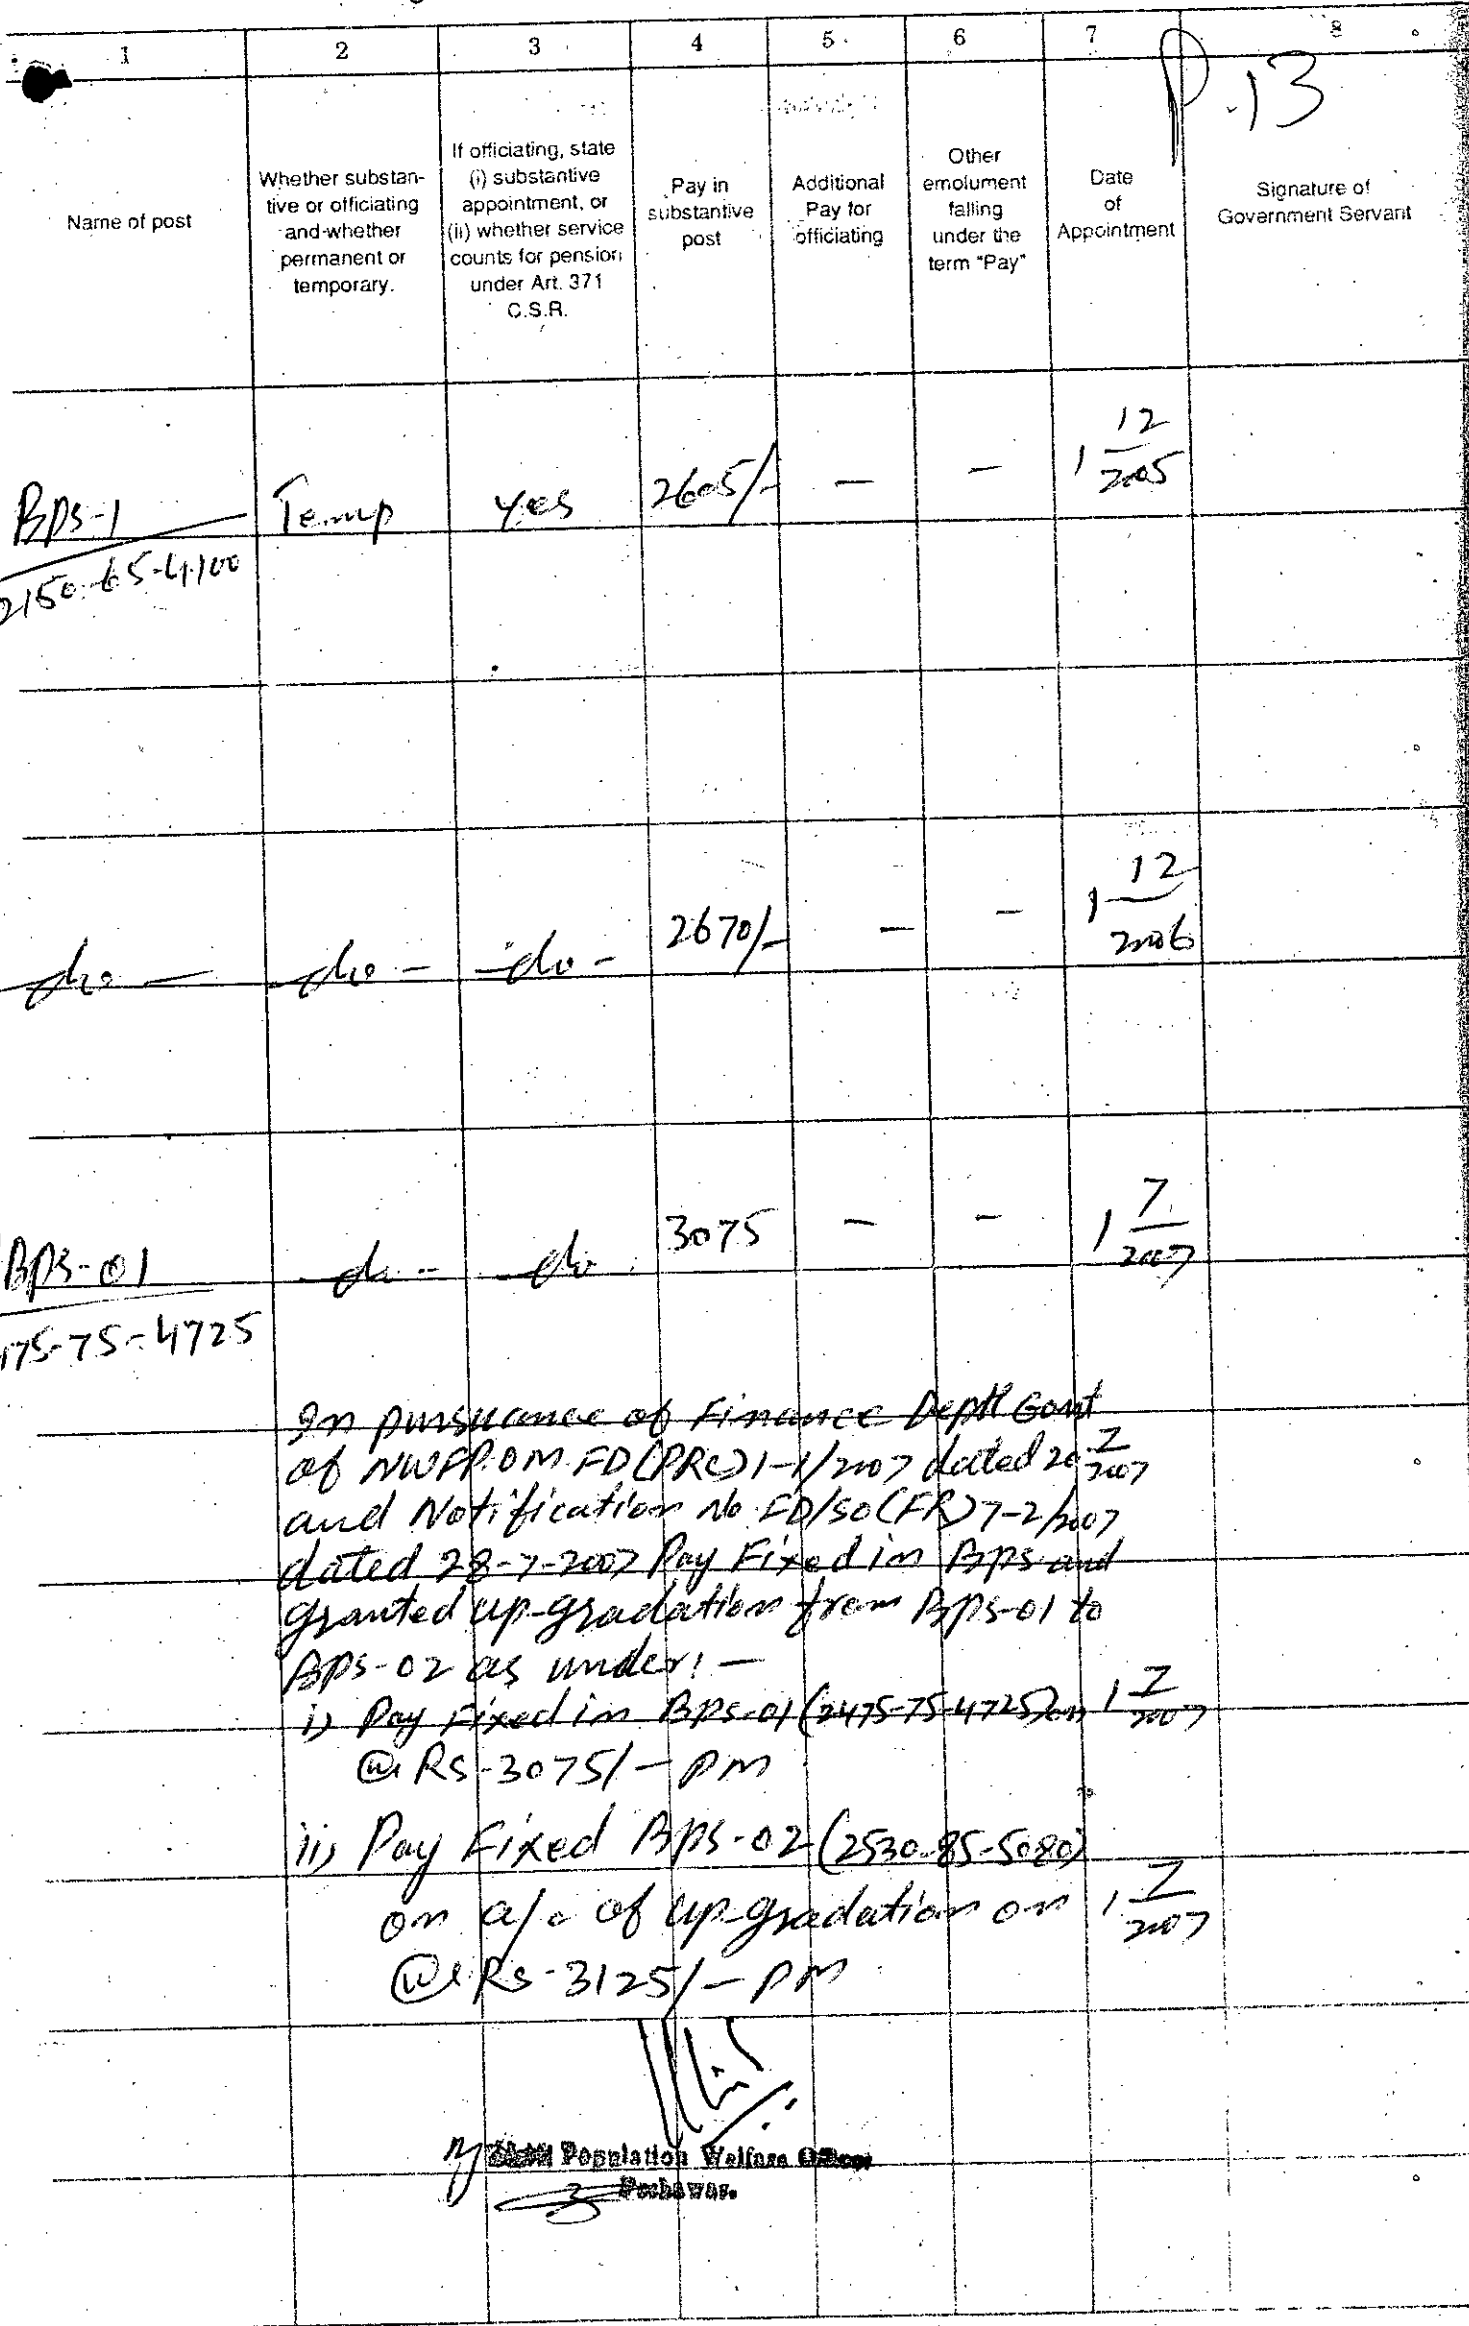 1 2 3 4 5 6 7 8
P.13
Name of post
Whether substan-
tive or officiating
and whether
permanent or
temporary.
If officiating, state
(i) substantive
appointment, or
(ii) whether service
counts for pension
under Art. 371
C.S.R.
Pay in
substantive
post
Additional
Pay for
officiating
Other
emolument
falling
under the
term "Pay"
Date
of
Appointment
Signature of
Government Servant
BPS-1 Temp yes 2605/- — — 1 12/2005
2150-65-4100
do — do - -do - 2670/- — — 1 12/2006
BPS-01 do - do 3075 — — 1 7/2007
175-75-4725
In pursuance of Finance Deptt Govt
of NWFP.OM.FD(PRC)1-1/2007 dated 20 7/2007
and Notification No FD/SO(FR)7-2/2007
dated 28-7-2007 Pay Fixed in BPS and
granted up-gradation from BPS-01 to
BPS-02 as under:—
i) Pay Fixed in BPS-01 (2475-75-4725) on 1 7/2007
@ Rs-3075/- PM
ii) Pay Fixed BPS-02 (2530-85-5080)
on a/c of up-gradation on 1 7/2007
@ Rs-3125/- PM
Population Welfare Officer
Peshawar.